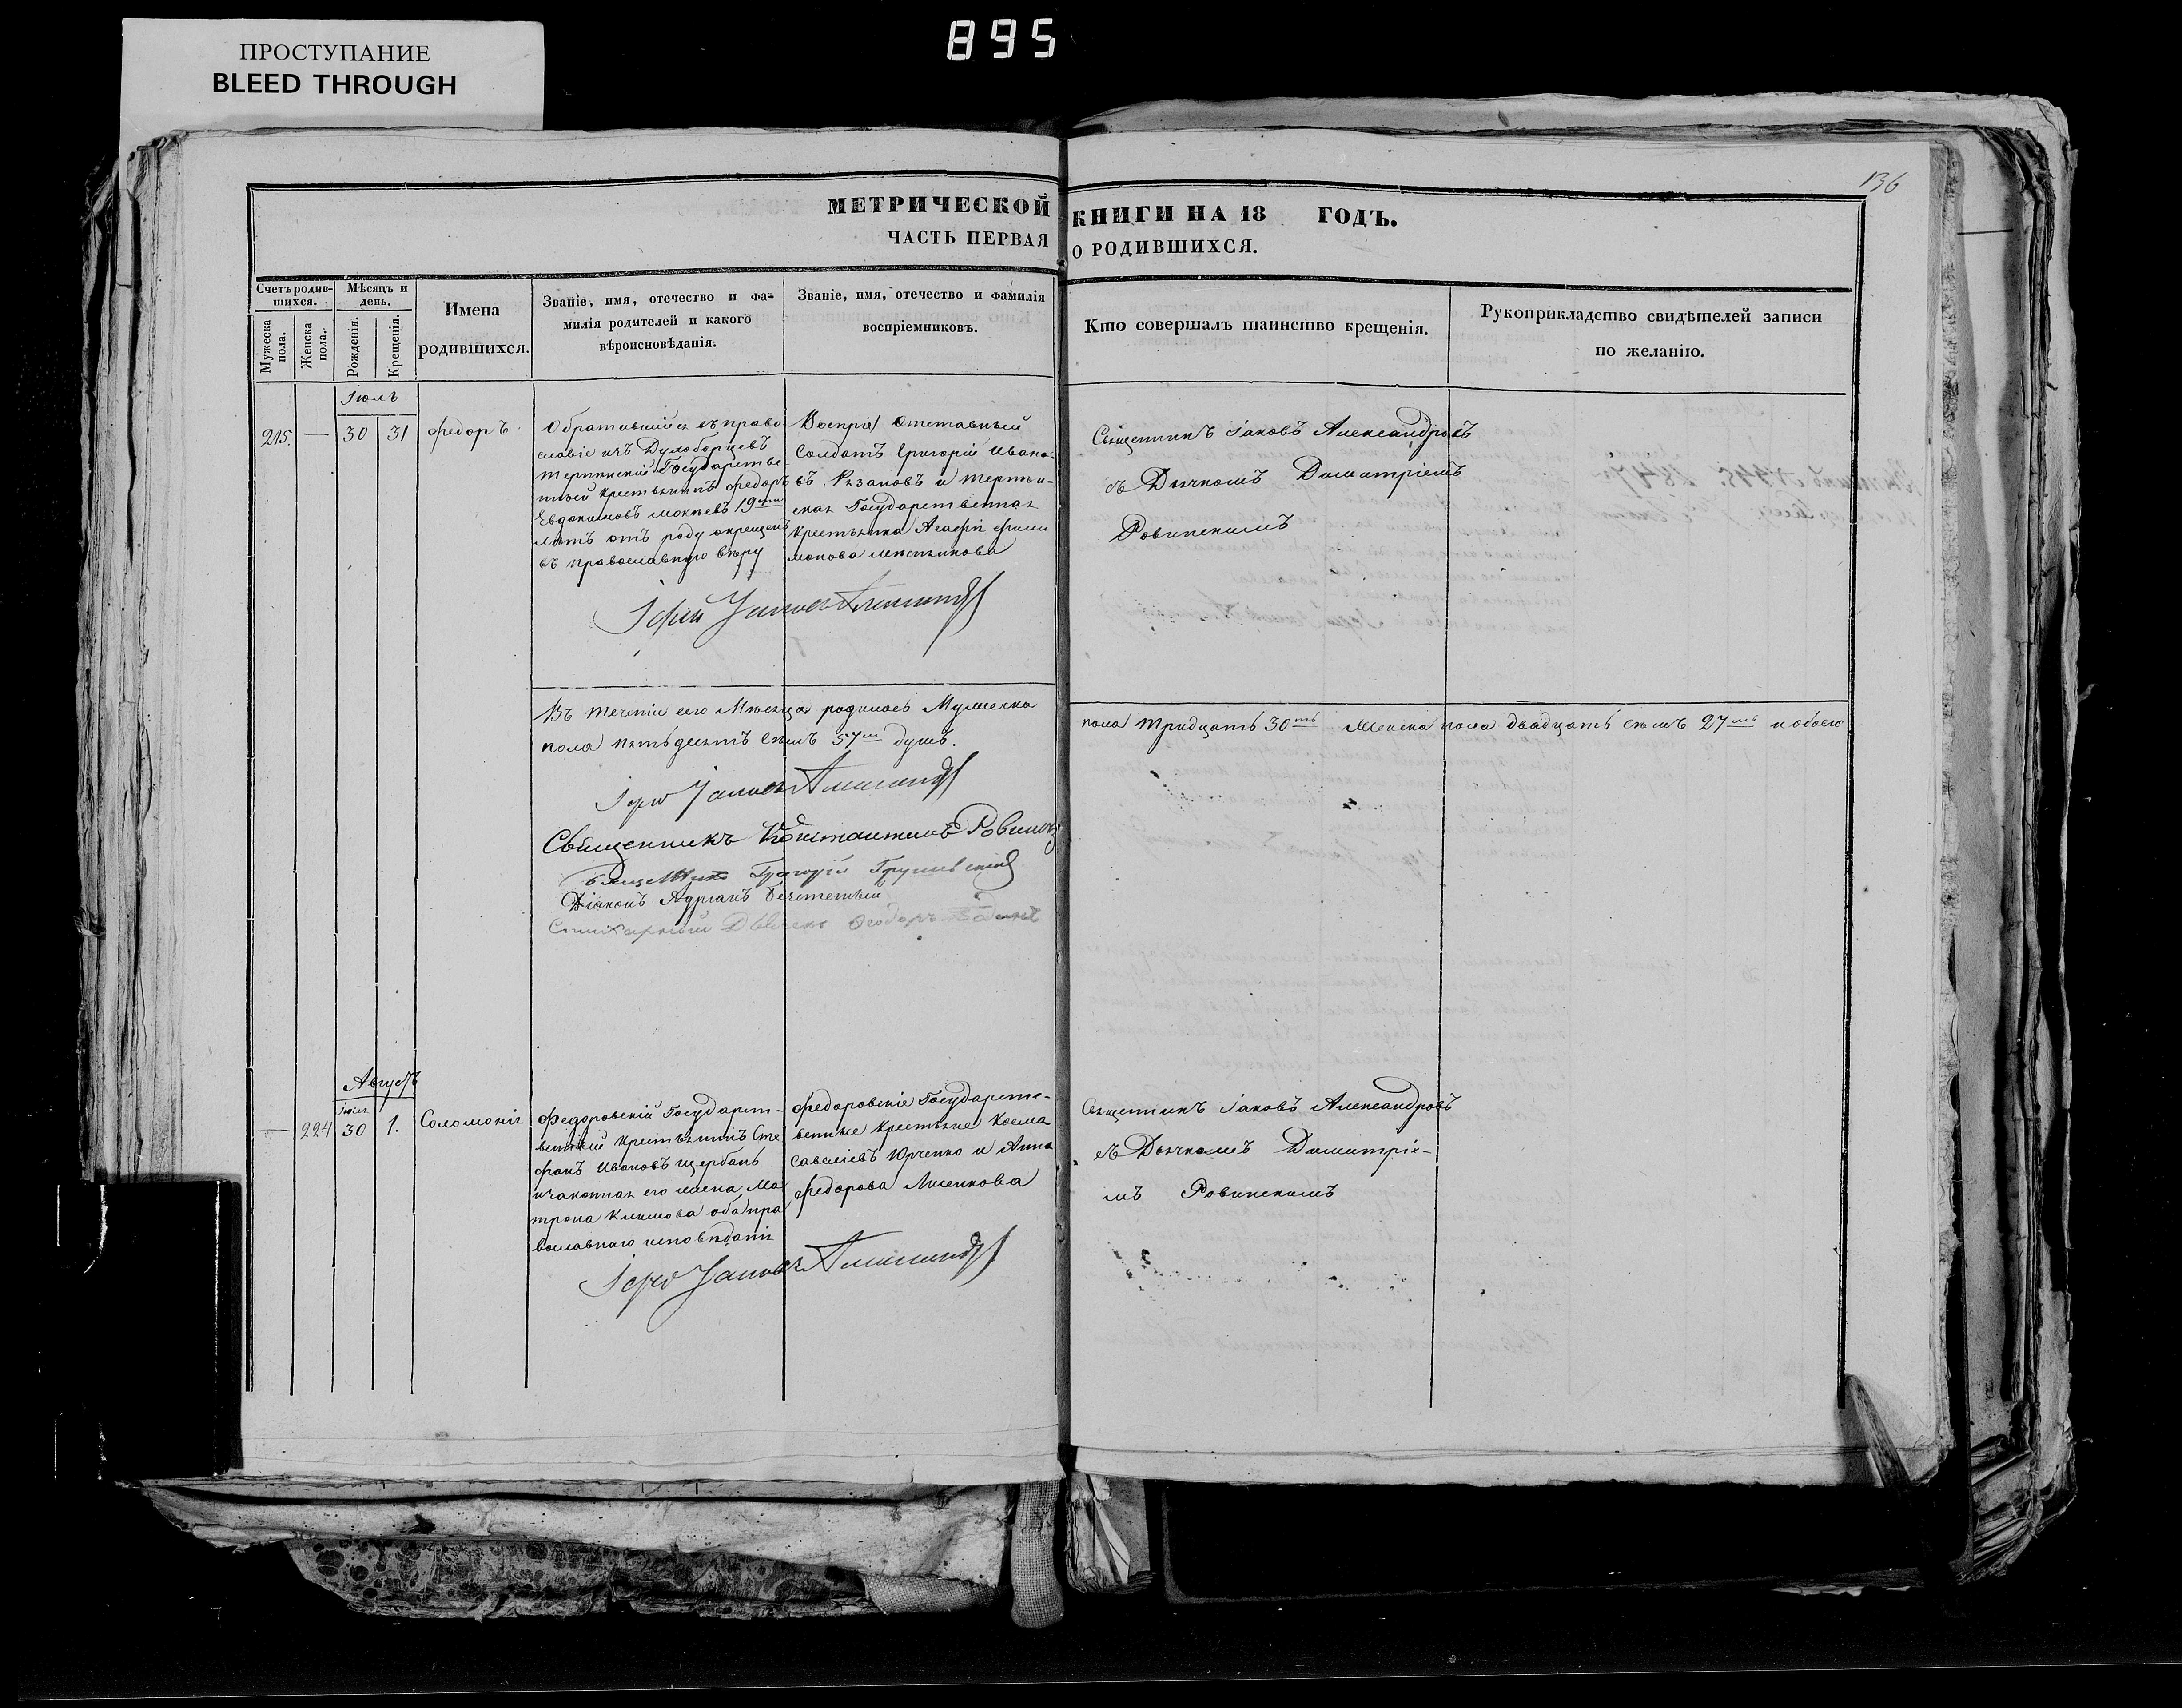 895
ПРОСТУПАНИЕ
BLEED THROUGH
136
МЕТРИЧЕСКОЙ КНИГИ НА 18 ГОДЪ.
ЧАСТЬ ПЕРВАЯ О РОДИВШИХСЯ.
Счетъ родив-
шихся.
Мужеска
пола.
Женска
пола.
Мѣсяцъ и
день.
Рожденія.
Крещенія.
Имена
родившихся.
Званіе, имя, отечество и фа-
милія родителей и какого
вѣроисновѣданія.
Званіе, имя, отечество и фамилія
воспріемниковъ.
Кто совершалъ таинство крещенія.
Рукоприкладство свидѣтелей записи
по желанію.
Іюль
215. — 30 31 Федоръ
Обратившійся съ право
славіе изъ Духоборцевъ
Терпенскій Государстве-
нный крестьянинъ Федоръ
Евдокимовъ 19ти
лѣтъ отъ роду окрещенъ
въ православную вѣру
Отставный
Солдатъ Григорій Ивано-
въ Рязановъ и Терпен-
ская Государственная
крестьянка Агафія Фили
монова
Священникъ Іаковъ Александровъ
съ Дьячкомъ Димитріемъ
Ровинскимъ
Іерей Іаковъ Александр
Въ теченіи сего Мѣсяца родилось Мужеска
пола тридцать 30ть Женска пола двадцать семь 27мь и обоего
пола пятьдесятъ семь 57мь душъ.
Іерей Іаковъ Александр
Священникъ Константинъ Ровинск
Григорій Грушевскій
Діаконъ Адріанъ
Стихарный Дьячекъ Ѳеодоръ
Августъ
Іюля
— 224 30 1. Соломонія
Федоровскій Государст-
венный крестьянинъ Сте
фанъ Ивановъ Щербань
и законная его жена Ма
трона Климова оба пра
вославнаго исповѣданія
Федоровскіе Государст-
венные крестьяне Косма
Савеліевъ Юрченко и Анна
Федорова Лисенкова
Священникъ Іаковъ Александровъ
съ Дьячкомъ Димитріе-
мъ Ровинскимъ
Іерей Іаковъ Александр